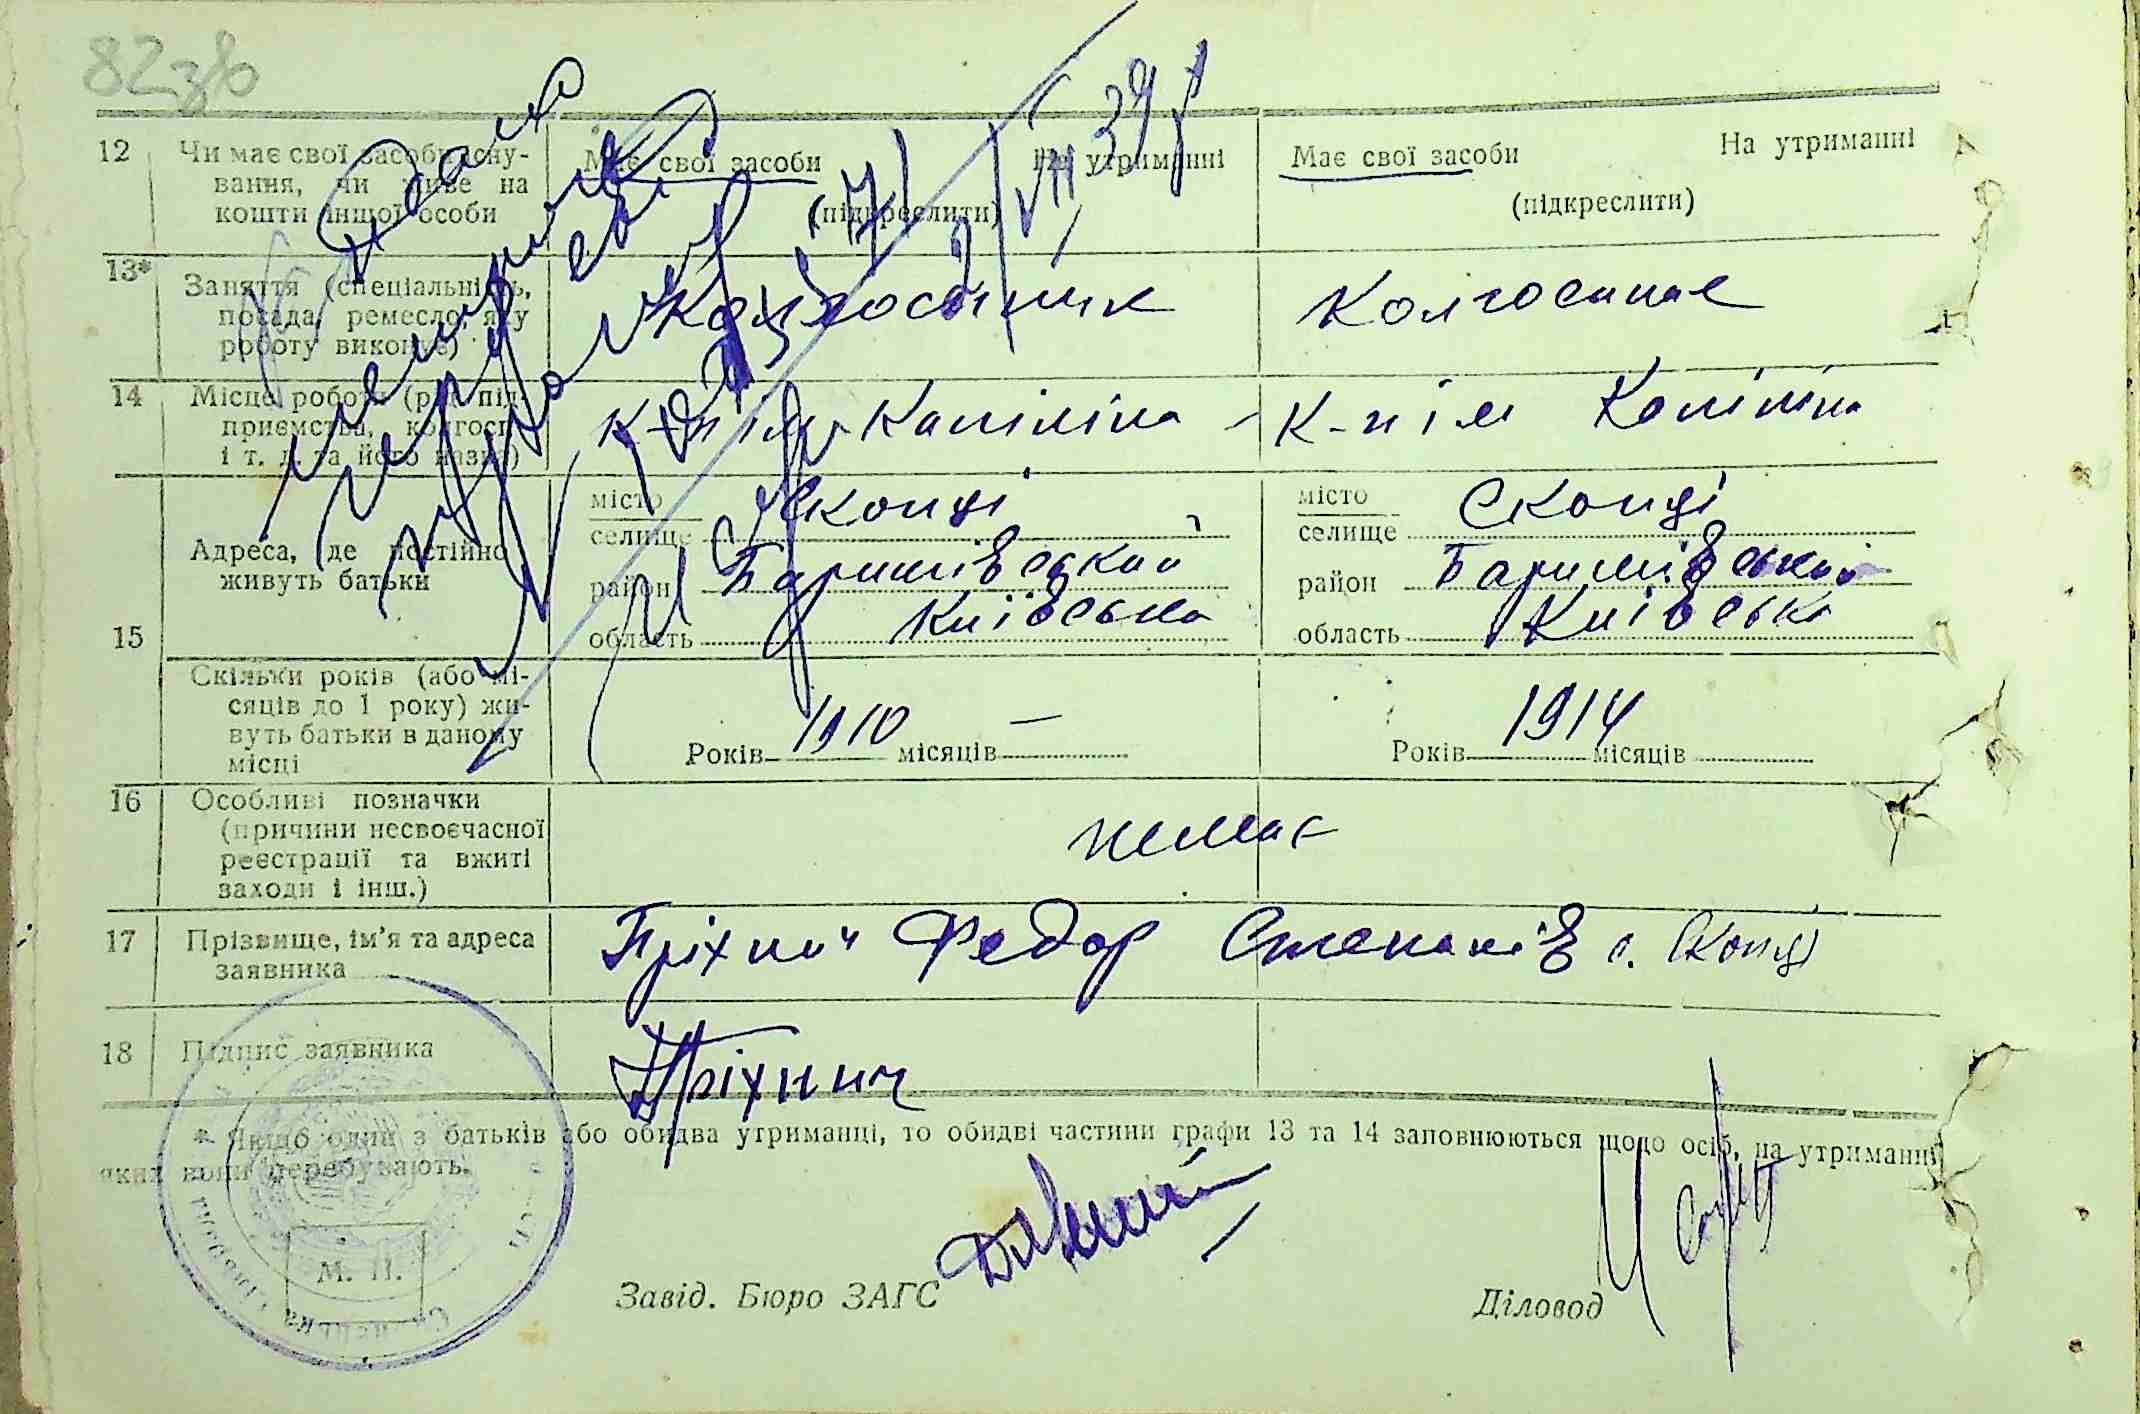 82зв
12 Чи має свої засоби існу-
вання, чи живе на
кошти іншої особи
Має свої засоби На утриманні
(підкреслити)
Має свої засоби На утриманні
(підкреслити)
39
13* Заняття (спеціальність,
посада, ремесло, яку
роботу виконує)
Колгоспник
Колгоспниця
14 Місце роботи (рід під-
приємства, колгосп
і т. д. та його назва)
К-п ім Калініна
К-п ім Калініна
15 Адреса, де постійно
живуть батьки
місто
селище Скопці
район Баришівський
область Київська
місто
селище Скопці
район Баришівський
область Київська
Скільки років (або мі-
сяців до 1 року) жи-
вуть батьки в даному
місці
Років 1910 місяців —
Років 1914 місяців
16 Особливі позначки
(причини несвоєчасної
реєстрації та вжиті
заходи і інш.)
немає
17 Прізвище, ім’я та адреса
заявника
Пріхнич Федор Степанів с. Скопці
18 Підпис заявника
Пріхнич
* Якщо один з батьків або обидва утриманці, то обидві частини графи 13 та 14 заповнюються щодо осіб, на утриманні
яких вони перебувають.
М. П.
Завід. Бюро ЗАГС
Діловод